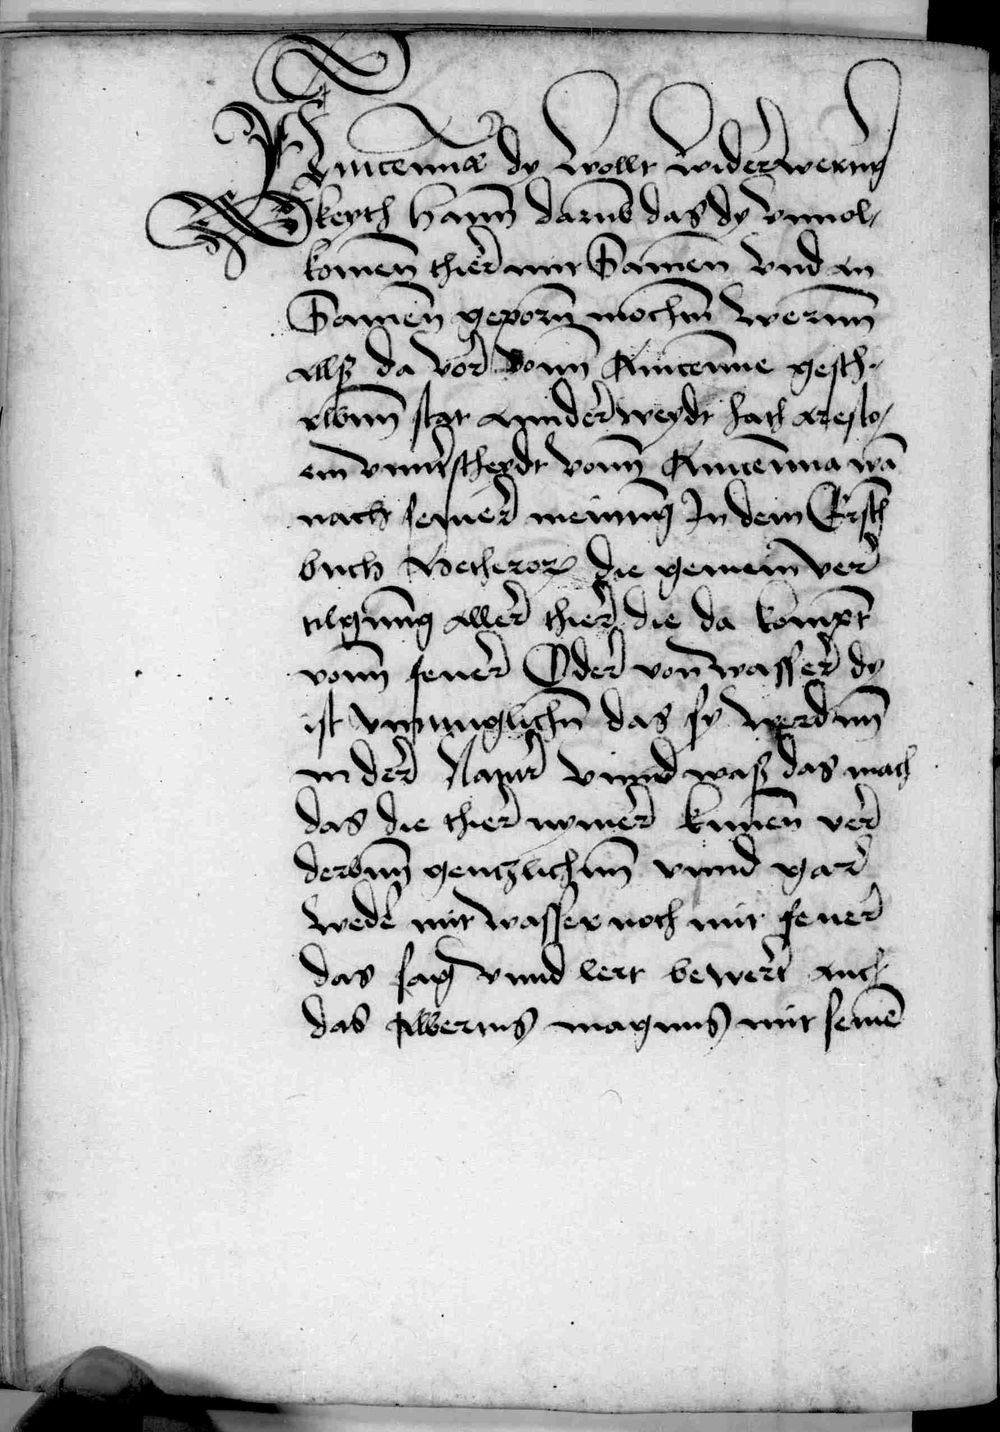 Avicenna dy wollt widerwertig
keyth hann darumb das dy vnnol„
komen thier mit Samen vnd an
Samen geporn mochen wernn
allß da vor vonn Auicenne gesch„
ribnn stet annderweydt hath Aresto„
em vnnterscheydt vonn Auicenna wan
nach seiner meinung In dem Ersth
buch Metheror die gemein ver
tilgung aller thier die da kompt
vonn feuer Oder von wasser dy
ist vnmuglichen das sy werdnn
in der Natur vnnd waß das mach
das die thier nymer kunen ver
derbnn genczlichnn vnnd gar
weder mit wasser noch mit feuer
das sag vnnd lert bewert auch
das Albertus magnus mit seinen